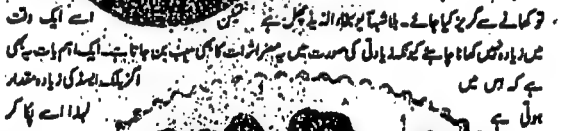 تو کھانے سے گریز کیا جائے۔ بلاشبہ آلو بخارا لذیذ پھل ہے لیکن اسے ایک وقت
میں زیادہ نہیں کھانا چاہئے کیونکہ زیادتی کی صورت میں یہ مضر اثرات کا بھی سبب بن جاتا ہے۔ ایک اہم بات یہ بھی
ہے کہ اس میں آگزیلک ایسڈ کی زیادہ مقدار
ہوتی ہے لہذا اسے پکا کر